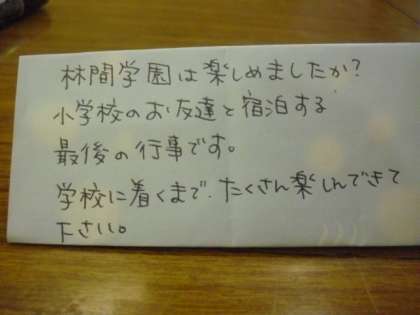 林間学園は楽しめましたか?
小学校のお友達と宿泊する
最後の行事です。
学校に着くまで、たくさん楽しんできて
下さい。